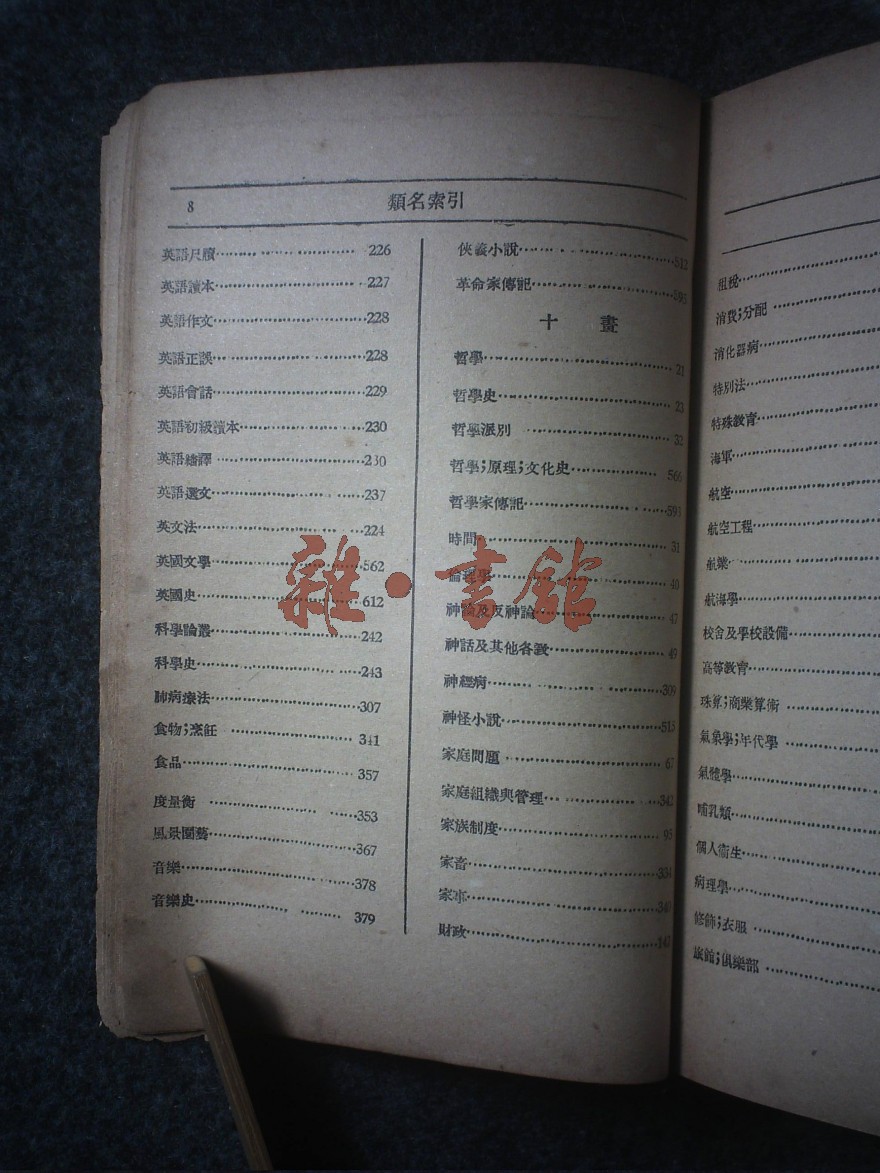 8
類名索引
英語尺牘 226
英語讀本 227
英語作文 228
英語正誤 228
英語會話 229
英語初級讀本 230
英語繙譯 230
英語選文 237
英文法 224
英國文學 562
英國史 612
科學論叢 242
科學史 243
肺病療法 307
食物;烹飪 341
食品 357
度量衡 353
風景園藝 367
音樂 378
音樂史 379
俠義小說 512
革命家傳記 595
十畫
哲學 21
哲學史 23
哲學派別 32
哲學;原理;文化史 566
哲學家傳記 593
時間 31
倫理學 40
神論及反神論 47
神話及其他各教 49
神經病 309
神怪小說 515
家庭問題 67
家庭組織與管理 342
家族制度 95
家畜 334
家事 340
財政 147
租稅
消費;分配
消化器病
特別法
特殊教育
海軍
航空
航空工程
航業
航海學
校舍及學校設備
高等教育
珠算;商業算術
氣象學;年代學
氣體學
哺乳類
個人衞生
病理學
修飾;衣服
旅館;俱樂部
雜·書館